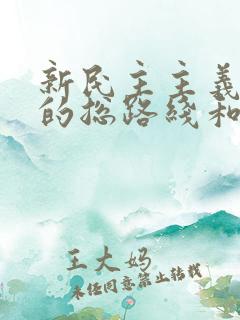 新民主主義
的总路綫和
王大妈
未经同意禁止转载